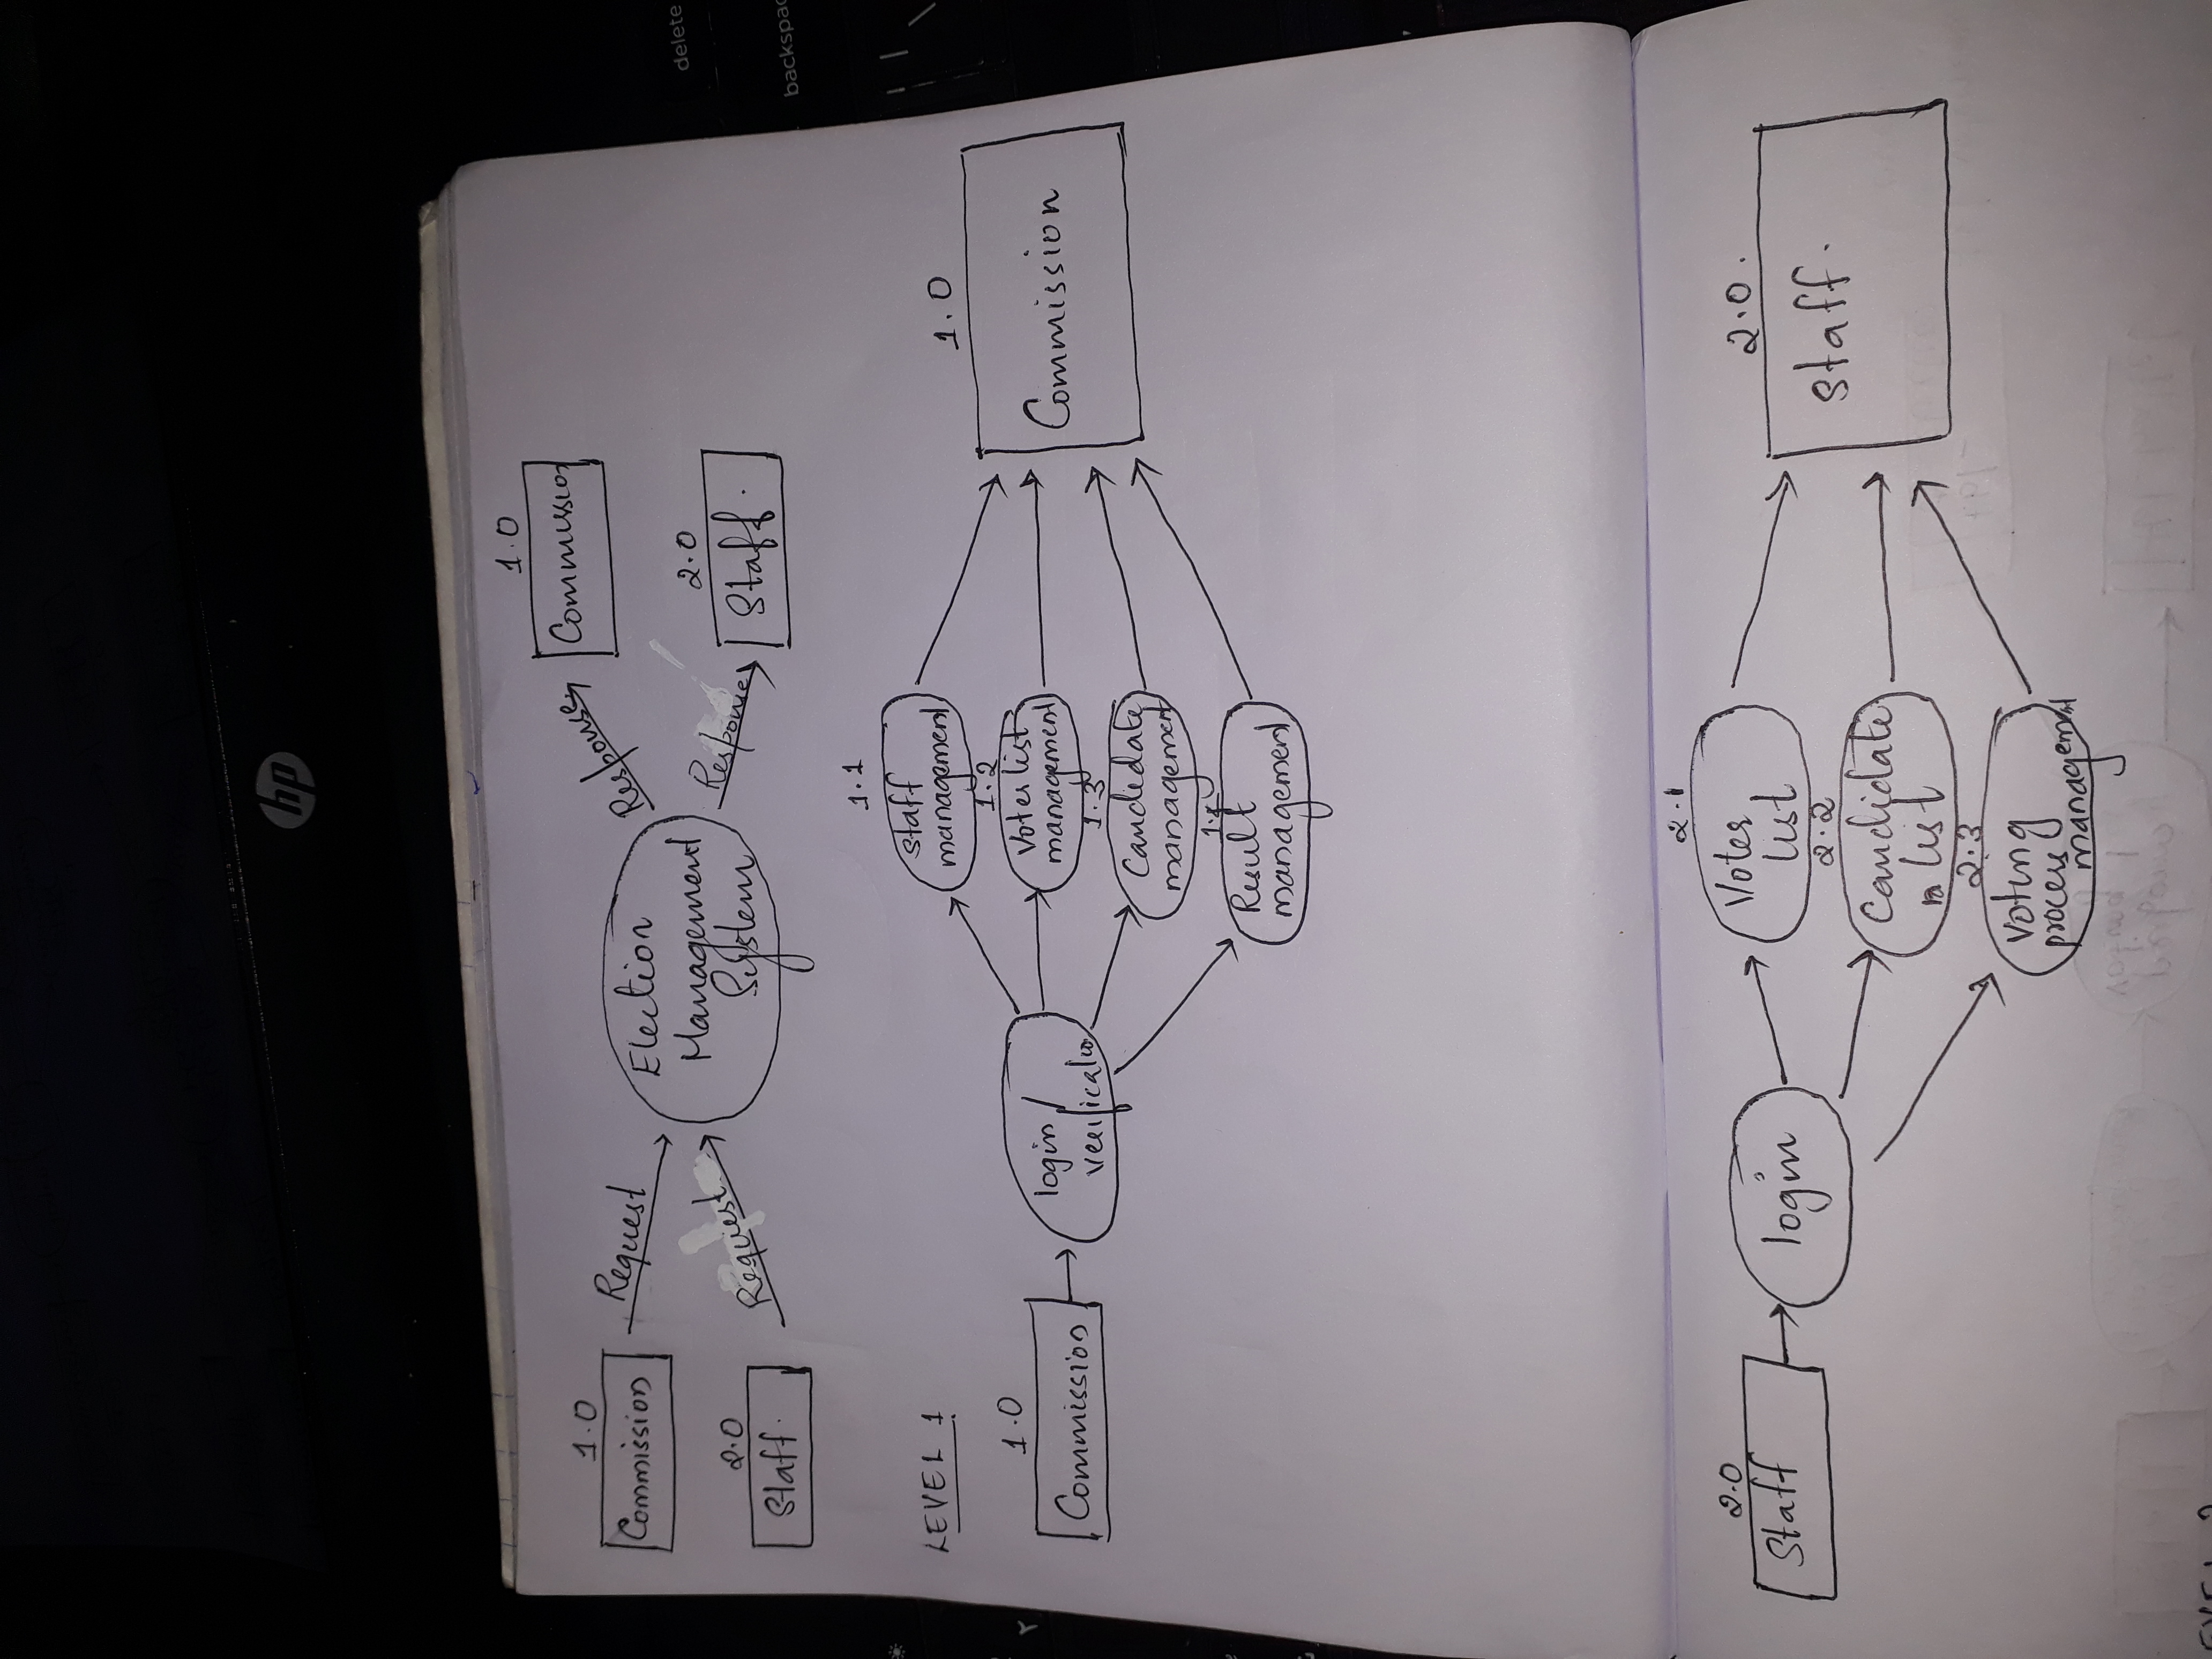 hp
delete
backspac
1.0
Commission
Request
Election
Management
System
Response
1.0
Commission
2.0
Staff.
Request
Response
2.0
Staff.
LEVEL 1
1.0
Commission
login /
verificatio
1.1
Staff
management
1.2
Voter list
management
1.3
Candidate
management
Result
management
1.0
Commission
2.0
Staff
login
2.1
Voter
list
2.2
Candidate
list
2.3
Voting
process
management
2.0.
Staff.